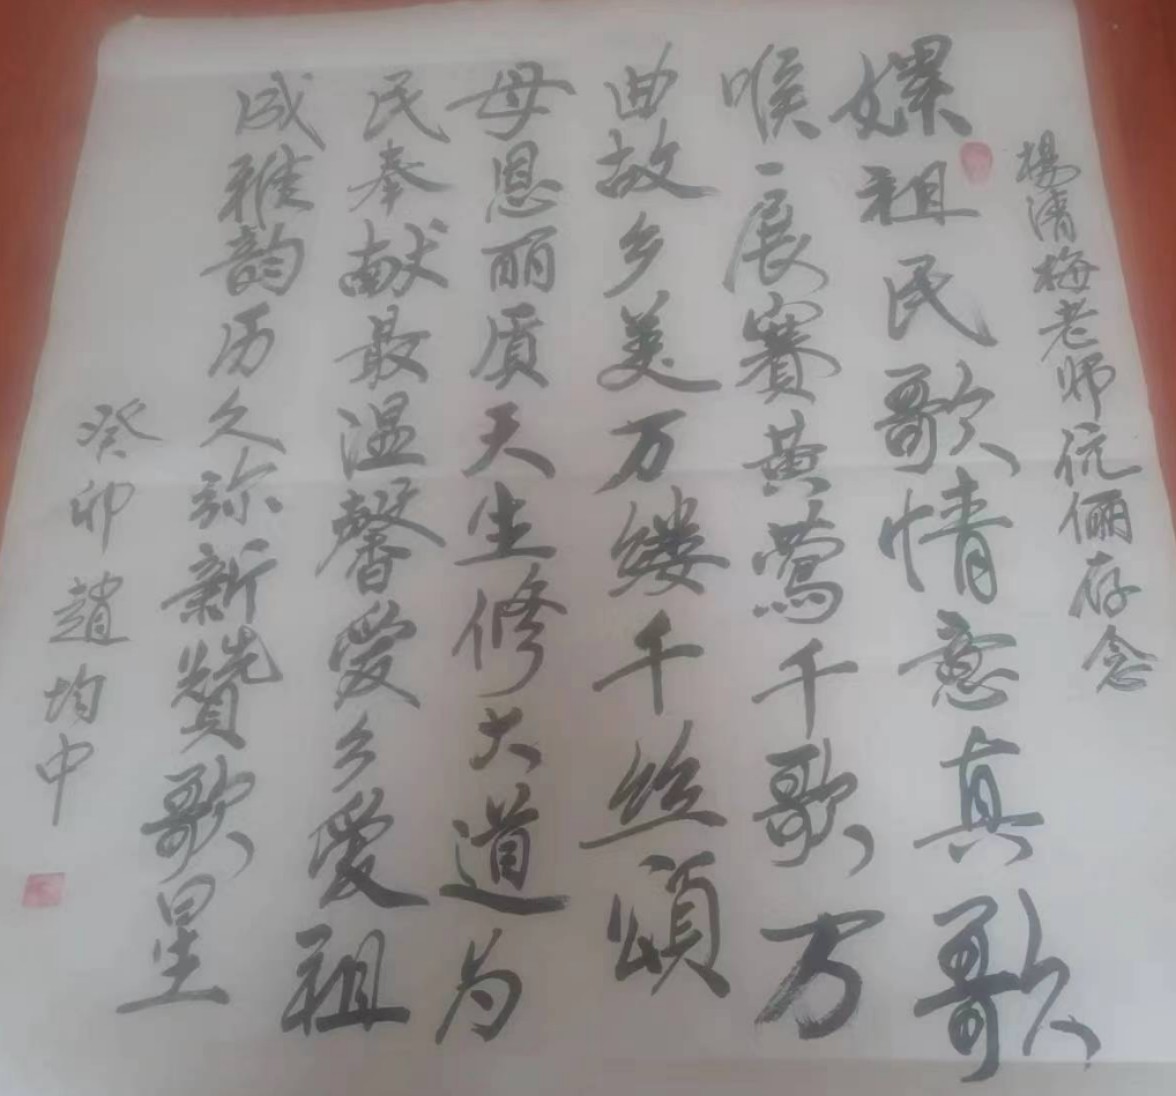 楊清梅老师伉俪存念
嫘祖民歌情意真歌
喉一展赛黄莺千歌万
曲故乡美万缕千丝頌
母恩丽质天生修大道为
民奉献最温馨爱乡爱祖
成雅韵历久弥新赞歌星
癸卯趙均中